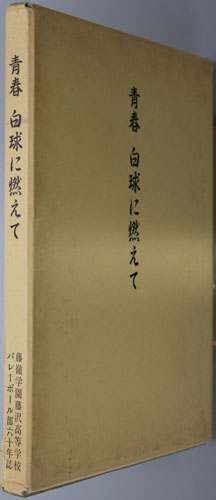 青春 白球に燃えて
藤嶺学園藤沢高等学校
バレーボール部六十年誌
青春 白球に燃えて